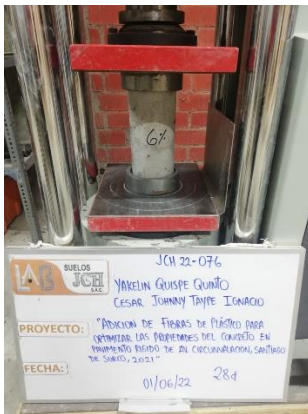 6%
JCH 22-076
LAB SUELOS
JCH
S.A.C.
YAKELIN QUISPE QUINTO
CESAR JOHNNY TAYPE IGNACIO
PROYECTO: "ADICION DE FIBRAS DE PLÁSTICO PARA
OPTIMIZAR LAS PROPIEDADES DEL CONCRETO EN
PAVIMENTO RIGIDO DE AV. CIRCUNVALACION, SANTIAGO
DE SURCO, 2021"
FECHA: 01/06/22 28d